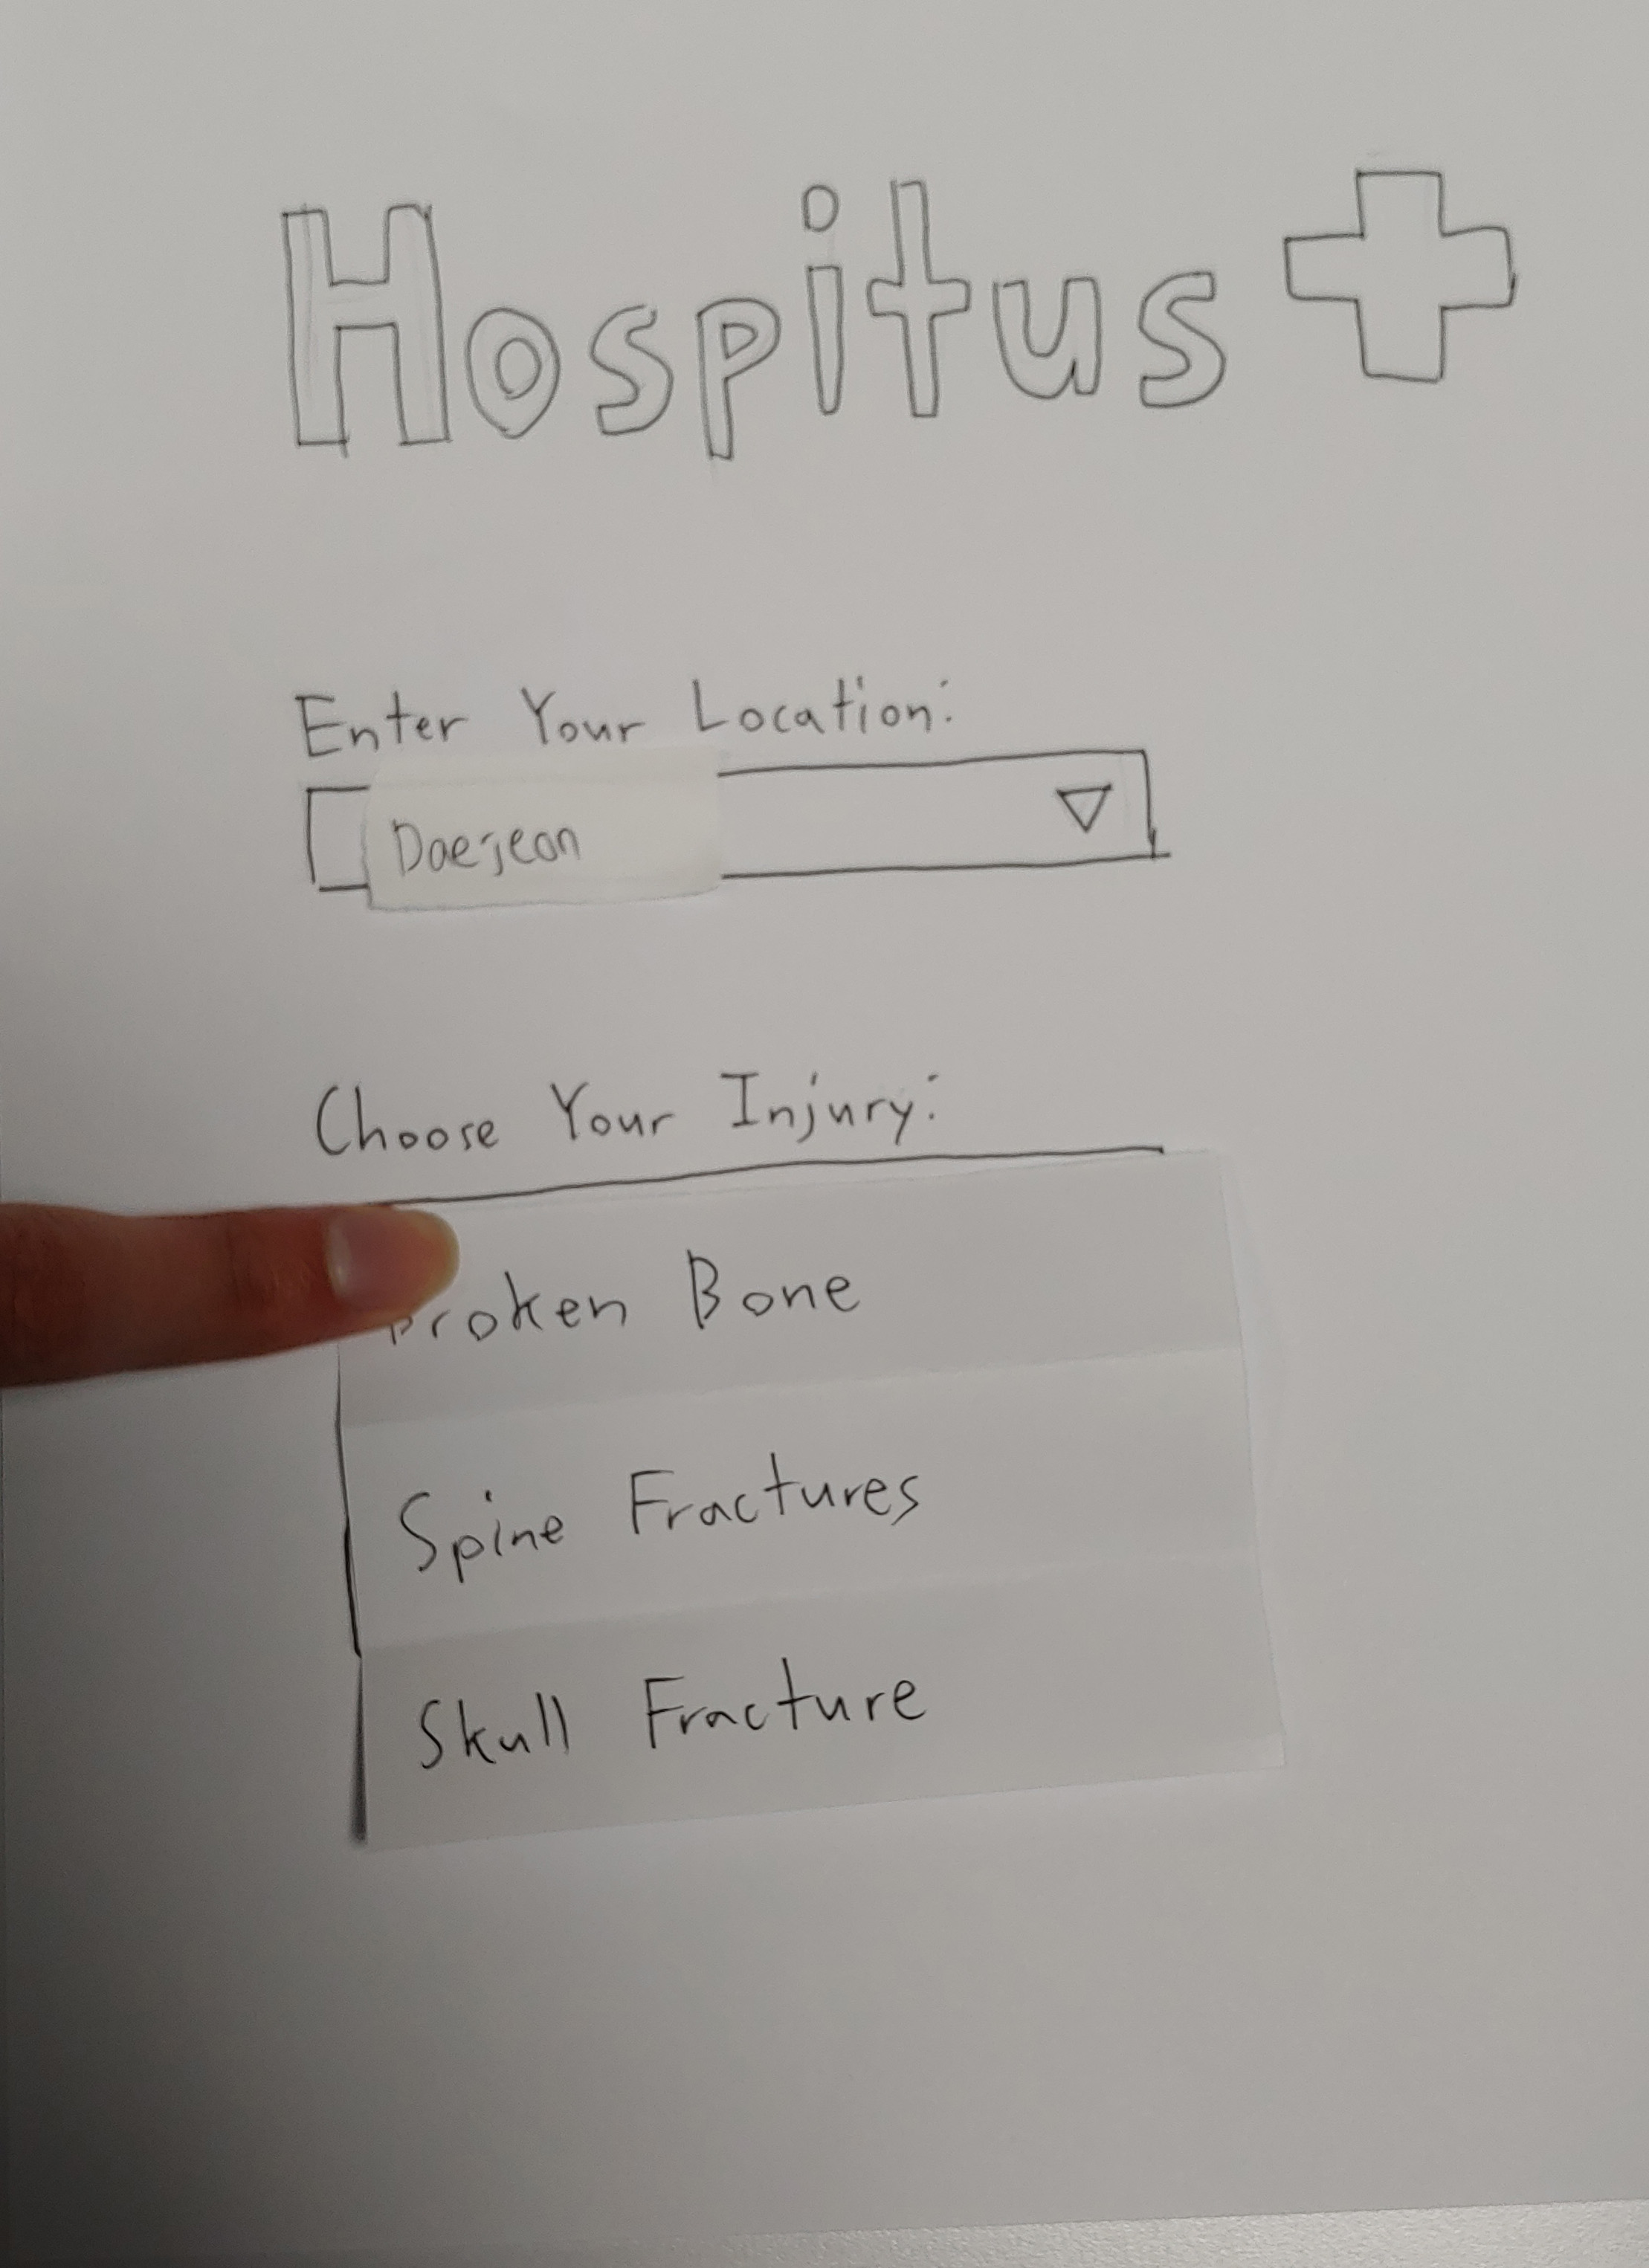 Hospitus
Enter Your Location:
Daejeon
Choose Your Injury:
Broken Bone
Spine Fractures
Skull Fracture